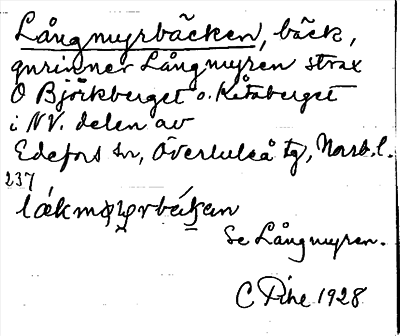 Långmyrbäcken, bäck,
gnrinner Långmyren strax
O Björkberget o. Kåtaberget
i NV. delen av
Edefors sn, Överluleå tg, Norrb. l.
237
Se Långmyren.
C Pihe 1928